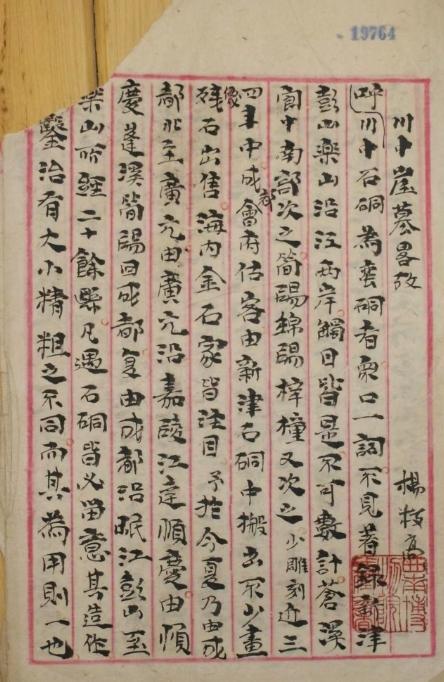 19764
川中崖墓畧攷
楊枝高
呼川中石硐為蛮硐者衆口一詞不見著録新津
彭山樂山沿江兩岸觸目皆是不可數計蒼溪
閬中南部次之簡陽綿陽梓橦又次之少雕刻近三
四年中成都會府估客由新津石硐中搬出不少畫像
殘石出售海内金石家皆注目予於今夏乃由成
都北至廣元由廣元沿嘉陵江達順慶由順
慶蓬溪簡陽回成都复由成都沿岷江彭山至
樂山所經二十餘縣凡遇石硐皆必留意其造作
鑿治有大小精粗之不同而其為用則一也